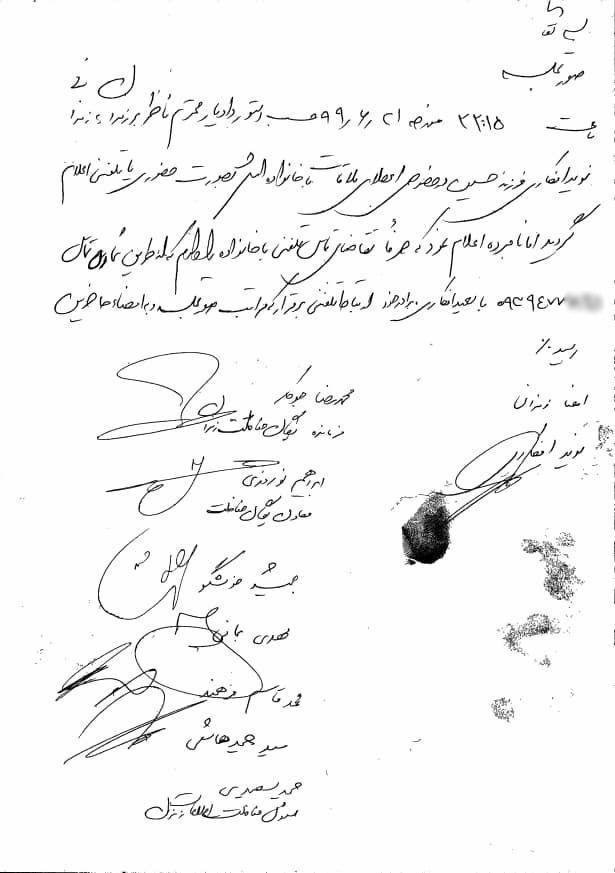 بسمه تعالی
صورتجلسه
ساعت ۲۲:۱۵ مورخه ۹۹٫۶٫۲۱ حسب دستور دادیار محترم ناظر بر زندان به زندانی
نوید افکاری فرزند حسین در خصوص اعطای ملاقات با خانواده اش بصورت حضوری یا تلفنی اعلام
گردید اما نامبرده اعلام نمود که صرفاً تقاضای تماس تلفنی با خانواده را دارم که از طریق شماره تماس
۰۹۳۹۴۷۷ با سعید افکاری برادر خود ارتباط تلفنی برقرار که مراتب صورتجلسه و به امضاء حاضرین
رسید٪
امضا زندانی
نوید افکاری
محمدرضا جوکار
فرمانده یگان حفاظت زندان
ابراهیم نوروزی
معاون یگان حفاظت
جمشید خوشگو
مهدی
محمد قاسم فرهمند
سید حمید هاشمی
حمید سعیدی
مسئول حفاظت اطلاعات زندان